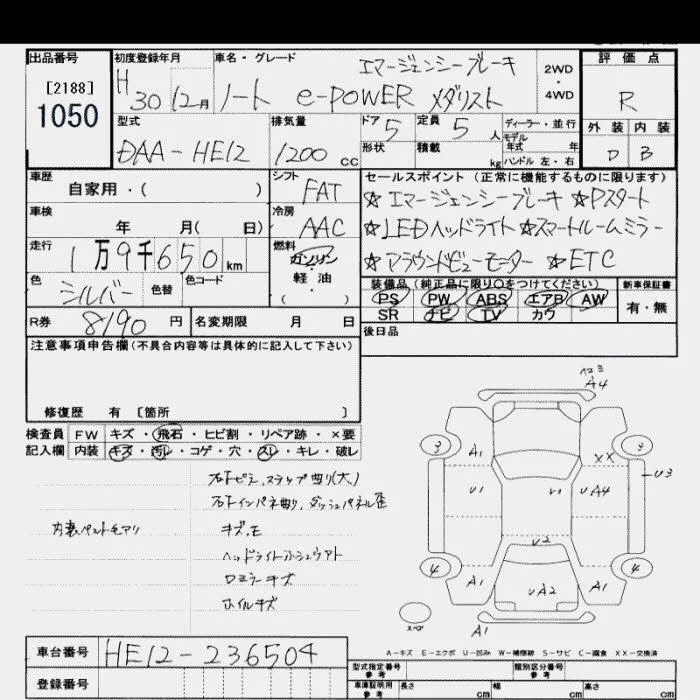 出品番号
[2188]
1050
初度登録年月
H 30 12月
車名・グレード
エマージェンシーブレーキ
ノート e-POWER メダリスト
2WD
・
4WD
評価点
R
外装 内装
D B
型式
DAA-HE12
排気量
1200 cc
ドア 5
形状
定員 5 人
積載 kg
ディーラー・並行
モデル
年式 年
ハンドル 左・右
車歴
自家用・( )
シフト
FAT
車検
年 月( 日)
冷房
AAC
走行
1万9千650km
燃料
ガソリン
・
軽油
( )
色
シルバー
色替
色コード
R券 8190 円
名変期限 月 日
セールスポイント (正常に機能するものに限ります)
☆エマージェンシーブレーキ ☆Pスタート
☆LEDヘッドライト☆スマートルームミラー
☆アラウンドビューモニター ☆ETC
装備品(純正品に限り○をつけてください)
PS PW ABS エアB AW
SR ナビ TV カワ
新車保証書
有・無
後日品
注意事項申告欄(不具合内容等は具体的に記入して下さい)
修復歴 有 [箇所 ]
検査員 FW キズ・飛石・ヒビ割・リペア跡・×要
記入欄 内装 キズ・汚レ・コゲ・穴・スレ・キレ・破レ
右Fピラ、ステップ曲り(大)
右Fインパネ曲り、ダッシュパネル歪
内装ペット毛アリ
キズ、E
ヘッドライト
ロミラーキズ
ホイルキズ
A4
3 3
A1 XX
U1 U1 UA4 U3
U2
4 4
A1 UA2 A1
スペア
A1
A-キズ E-エクボ U-凹み W-補修跡 S-サビ C-腐食 XX-交換済
車台番号 HE12-236504
登録番号
型式指定番号
参考
類別区分番号
参考
車庫証明用
参考
長さ cm 幅 cm 高さ cm